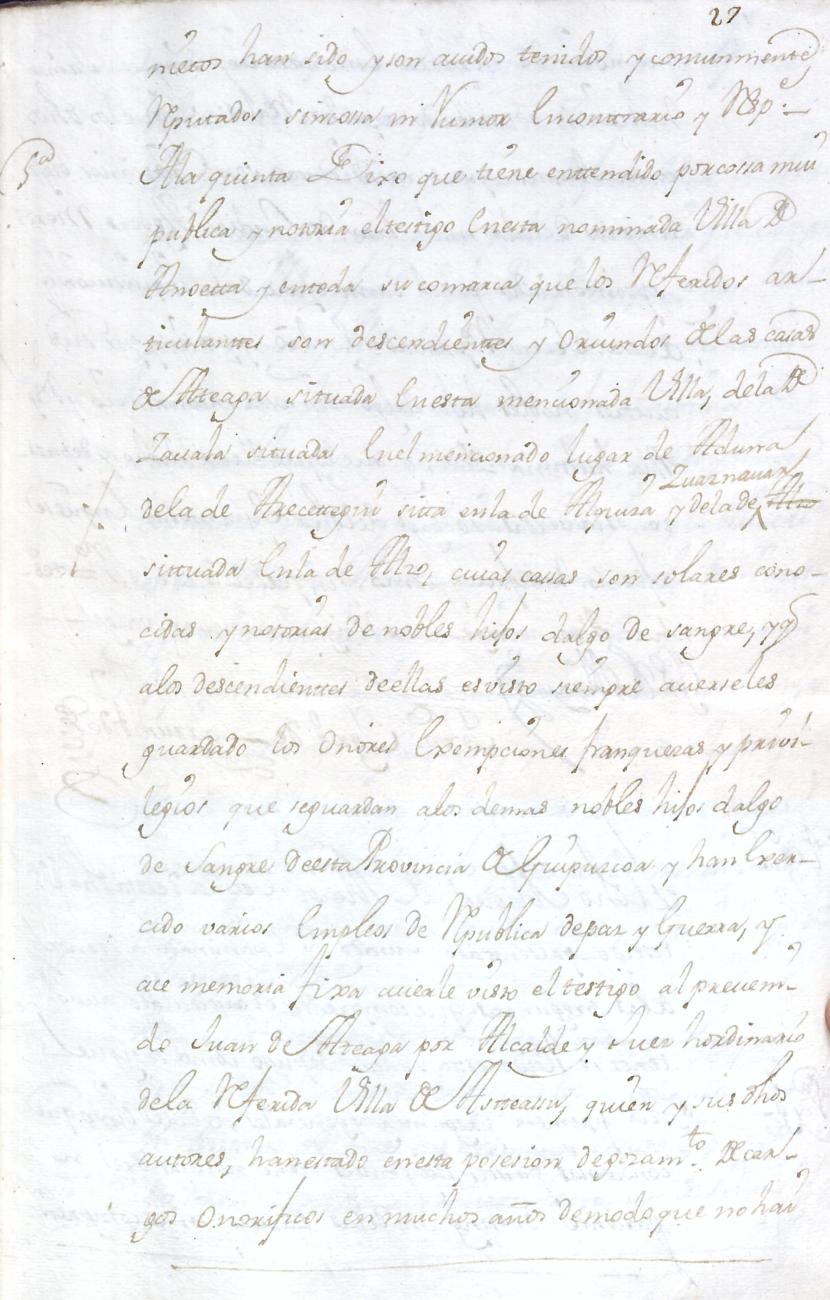 27
nietos han sido y son auidos tenidos y comunmente
Reputados sin cossa ni Rumor En conttrario y Respe.
5ª
A la quinta Dixo que tiene enttendido por cossa mui
publica y notoria el testigo En esta nominada Villa de
Anoetta y en toda su comarca que los Referidos ar-
ticulanttes son descendienttes y Oriundos de las casas
de Atteaga situada En esta mencionada Villa, de la de
Zacala situada En el mencionado lugar de Aduna
Zuaznauar
de la de Arecettegui sitta en la de Alquiza y de la de Alzo
sittuada En la de Alzo, cuias casas son solares cono-
cidas y notorias de nobles hijos dalgo de sangre, y q
a los descendienttes de ellas es visto siempre auerseles
guardado los Onores Exempciones franquezas y priui-
legios que se guardan a los demas nobles hijos dalgo
de Sangre de esta Provincia de Guipuzcoa y han Exer-
cido varios Empleos de Republica de paz y Guerra, y
ace memoria fixa auerle visto el testigo al preueni-
do Juan de Atteaga por Alcalde y Juez hordinario
de la Referida Villa de Astteassu, quien y sus dhos
autores, han estado en esta posesion de gozamto. de car-
gos Onorificos en muchos años de modo que no hai